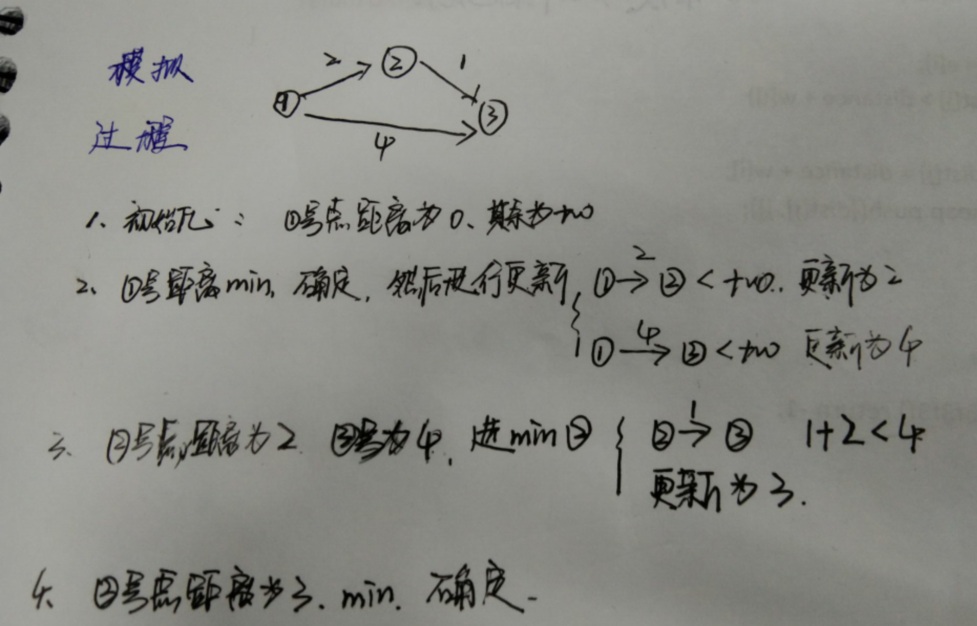 模拟
过程
2 ② 1
①
③
4
1、初始化: ①号点距离为0、其余为+∞
2、①号距离min, 确定, 然后进行更新, ①→2②<+∞. 更新为2
①→4③<+∞ 更新为4
3、②号点距离为2 ③号为4, 选min② ②→1③ 1+2<4
更新为3.
4、③号点距离为3、min. 确定.